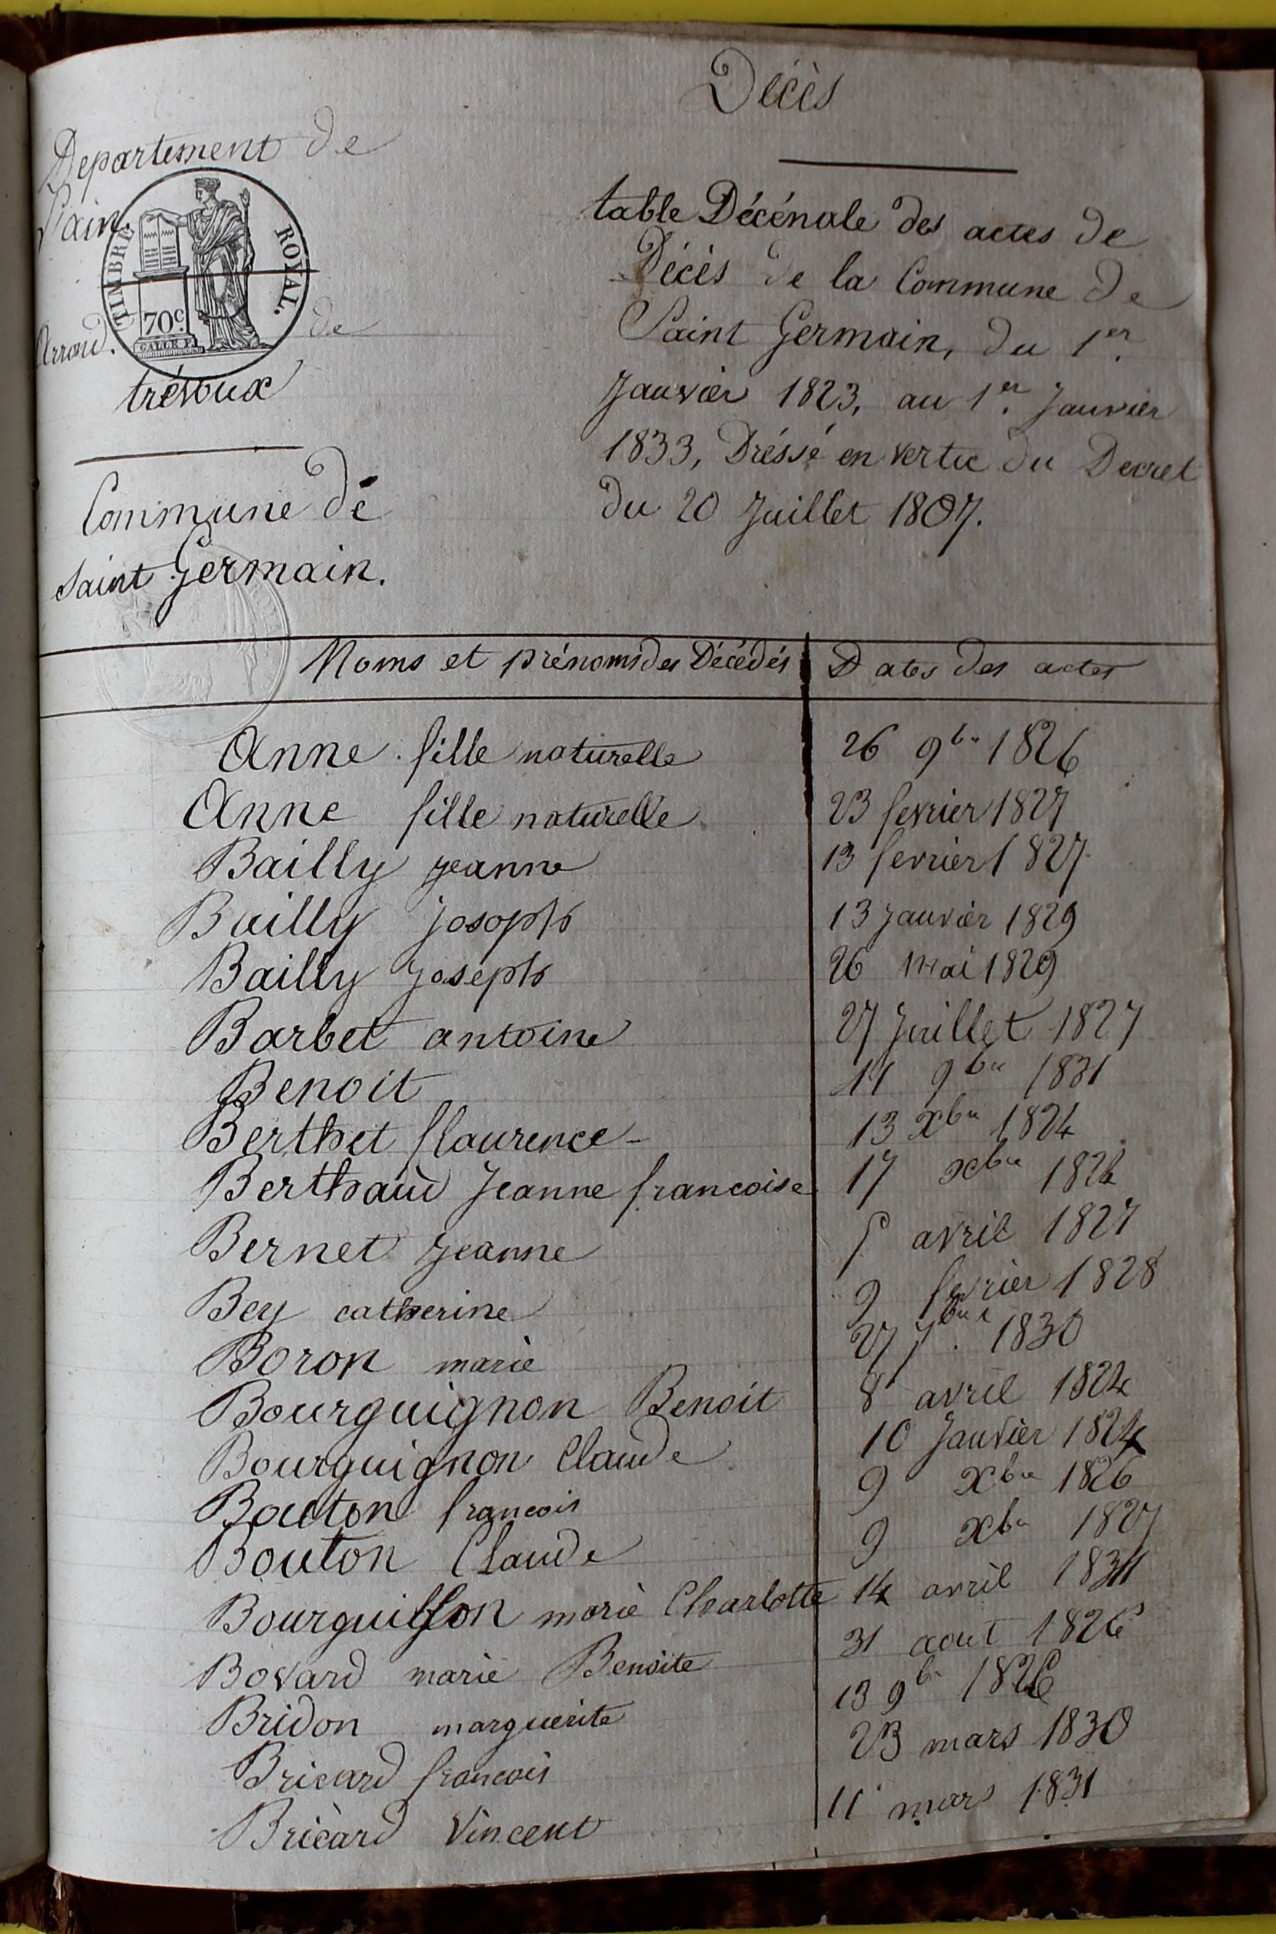 Décès
Departement de
l'ain
TIMBRE ROYAL.
70c.
Arrond. de
trévoux
Commune de
Saint Germain.
table Décénale des actes de
Décès de la Commune de
Saint Germain, du 1er.
Janvier 1823, au 1er. Janvier
1833, Dréssé en vertu du Decret
du 20 Juillet 1807.
Noms et prénoms des Décédés Dates des actes
Anne fille naturelle 26 9bre 1826
Anne fille naturelle 23 fevrier 1827
Bailly jeanne 13 fevrier 1827
Bailly Josoph 13 Janvier 1829
Bailly Joseph 26 mai 1829
Barbet antoine 27 Juillet 1827
Benoit 11 9bre 1831
Berthet flaurence 13 Xbre 1824
Berthaud Jeanne francoise 17 xbre 1824
Bernet Jeanne 5 avril 1827
Bey catherine 9 fevrier 1828
Boron marie 27 7bre 1830
Bourguignon Benoit 8 avril 1824
Bourguignon Claude 10 Janvier 1824
Bouton francois 9 Xbre 1826
Bouton Claude 9 xbre 1827
Bourguillon marie Charlotte 14 avril 1831
Bovard marie Benoite 31 aout 1826
Bridon marguerite 13 9bre 1826
Bricard francois 23 mars 1830
Bricard Vincent 11 mars 1831